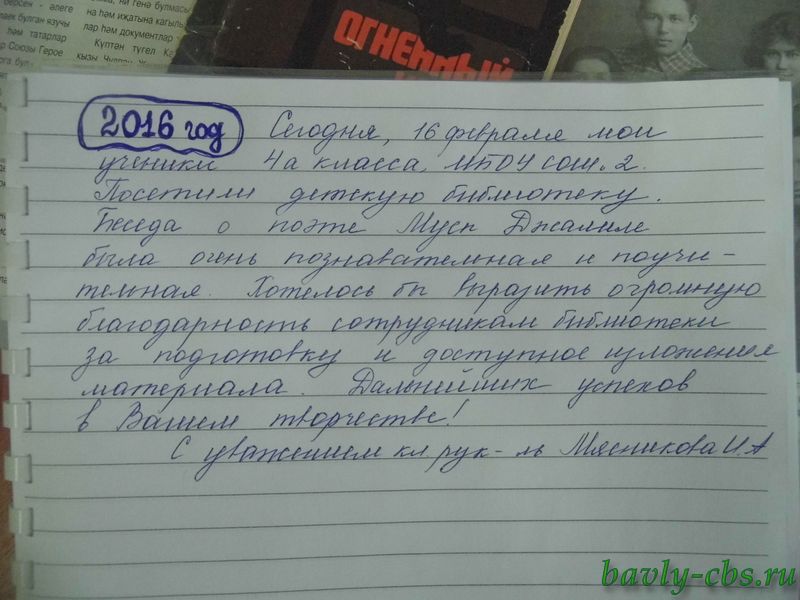 берсен - әлеге
на һәм иҗатына кагыль
лар һәм документлар
һәм татарлар
Күптән түгел
Союзы Герое
кызы Чулпан
ОГНЕННЫЙ
2016 год
Сегодня, 16 февраля мои
ученики 4а класса МБОУ СОШ. 2.
Посетили детскую библиотеку.
Беседа о поэте Мусе Джалиле
была очень познавательная и поучи-
тельная. Хотелось бы выразить огромную
благодарность сотрудникам библиотеки
за подготовку и доступное изложение
материала. Дальнейших успехов
в Вашем творчестве!
С уважением кл рук-ль Мясникова И А
bavly-cbs.ru